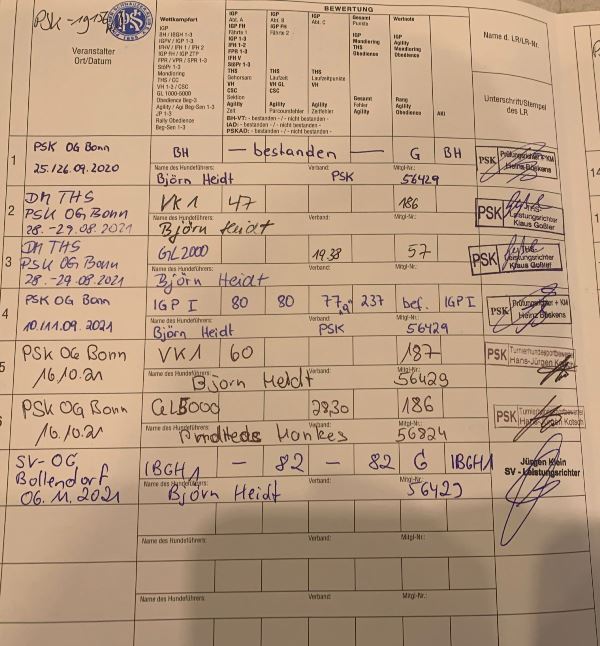 PSK
BEWERTUNG
Veranstalter
Ort/Datum
Wettkampfart
IGP
BH / IBGH 1-3
IGPV / IGP 1-3
IFHV / IFH 1 / IFH 2
IGP FH / IGP ZTP
FPR / VPR / SPR 1-3
StöPr 1-3
Mondioring
THS / CC
VH 1-3 / CSC
GL 1000-5000
Obedience Beg-3
Agility / Agi Beg-Sen 1-3
JP 1-3
Rally Obedience
Beg-Sen 1-3
IGP
Abt. A
IGP FH
Fährte 1
IGP 1-3
IFH 1-2
FPR 1-3
IFH V
StöPr 1-3
THS
Gehorsam
CSC
Sektion
Agility
Zeit
IGP
Abt. B
IGP FH
Fährte 2
THS
Laufzeit
VH GL
CSC
Agility
Parcoursfehler
IGP
Abt. C
THS
Laufzeitpunkte
VH
CSC
Agility
Zeitfehler
Gesamt
Punkte
IGP
Mondioring
THS
Obedience
Gesamt
Fehler
Agility
Wertnote
IGP
Agility
Mondioring
Obedience
Rang
Agility
Obedience
AKI
BH-VT: - bestanden - / - nicht bestanden -
IAD: - bestanden - / - nicht bestanden -
PSKAD: - bestanden - / - nicht bestanden -
Name d. LR/LR-Nr.
Unterschrift/Stempel
des LR
1
PSK OG Bonn
25./26.09.2020
BH — bestanden — G BH
Name des Hundeführers: Verband: Mitgl-Nr.:
Björn Heidt PSK 56429
PSK Prüfungsrichter + KM
Heinz Büskens
2
DM THS
PSK OG Bonn
28.-29.08.2021
VK1 47 186
Name des Hundeführers: Verband: Mitgl-Nr.:
Björn Heidt
PSK
Leistungsrichter
Klaus Goßler
3
DM THS
PSK OG Bonn
28.-29.08.2021
GL2000 19.38 57
Name des Hundeführers: Verband: Mitgl-Nr.:
Björn Heidt
PSK
Leistungsrichter
Klaus Goßler
4
PSK OG Bonn
10./11.09.2021
IGP I 80 80 77 "a" 237 bef. IGP I
Name des Hundeführers: Verband: Mitgl-Nr.:
Björn Heidt PSK 56429
PSK Prüfungsrichter + KM
Heinz Büskens
5
PSK OG Bonn
16.10.21
VK1 60 187
Name des Hundeführers: Verband: Mitgl-Nr.:
Björn Heidt 56429
PSK
Hans-Jürgen Kotsch
6
PSK OG Bonn
16.10.21
GL5000 28,30 186
Name des Hundeführers: Verband: Mitgl-Nr.:
56824
PSK
SV-OG
Bollendorf
06.11.2021
IBGH1 - 82 - 82 G IBGH1
Name des Hundeführers: Verband: Mitgl-Nr.:
Björn Heidt 56429
Jürgen Klein
SV - Leistungsrichter
Name des Hundeführers: Verband: Mitgl-Nr.:
Name des Hundeführers: Verband: Mitgl-Nr.: